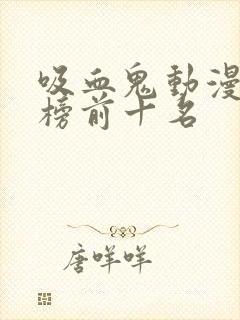 吸血鬼動漫
榜前十名
唐咩咩